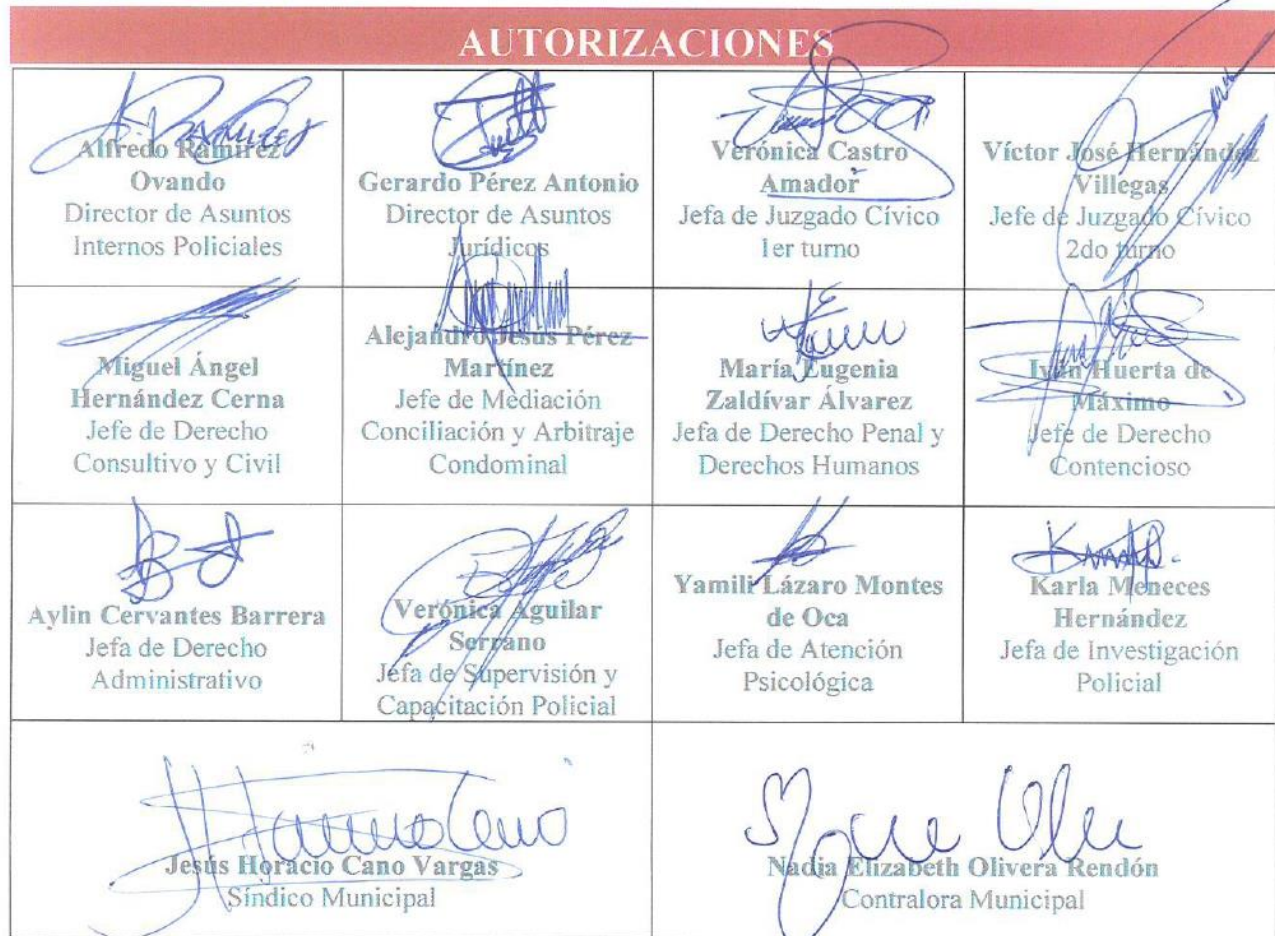 AUTORIZACIONES
Alfredo Ramírez
Ovando
Director de Asuntos
Internos Policiales
Gerardo Pérez Antonio
Director de Asuntos
Jurídicos
Verónica Castro
Amador
Jefa de Juzgado Cívico
1er turno
Víctor José Hernández
Villegas
Jefe de Juzgado Cívico
2do turno
Miguel Ángel
Hernández Cerna
Jefe de Derecho
Consultivo y Civil
Alejandro Jesús Pérez
Martínez
Jefe de Mediación
Conciliación y Arbitraje
Condominal
María Eugenia
Zaldívar Álvarez
Jefa de Derecho Penal y
Derechos Humanos
Iván Huerta de
Máximo
Jefe de Derecho
Contencioso
Aylin Cervantes Barrera
Jefa de Derecho
Administrativo
Verónica Aguilar
Serrano
Jefa de Supervisión y
Capacitación Policial
Yamili Lázaro Montes
de Oca
Jefa de Atención
Psicológica
Karla Meneces
Hernández
Jefa de Investigación
Policial
Jesús Horacio Cano Vargas
Síndico Municipal
Nadia Elizabeth Olivera Rendón
Contralora Municipal